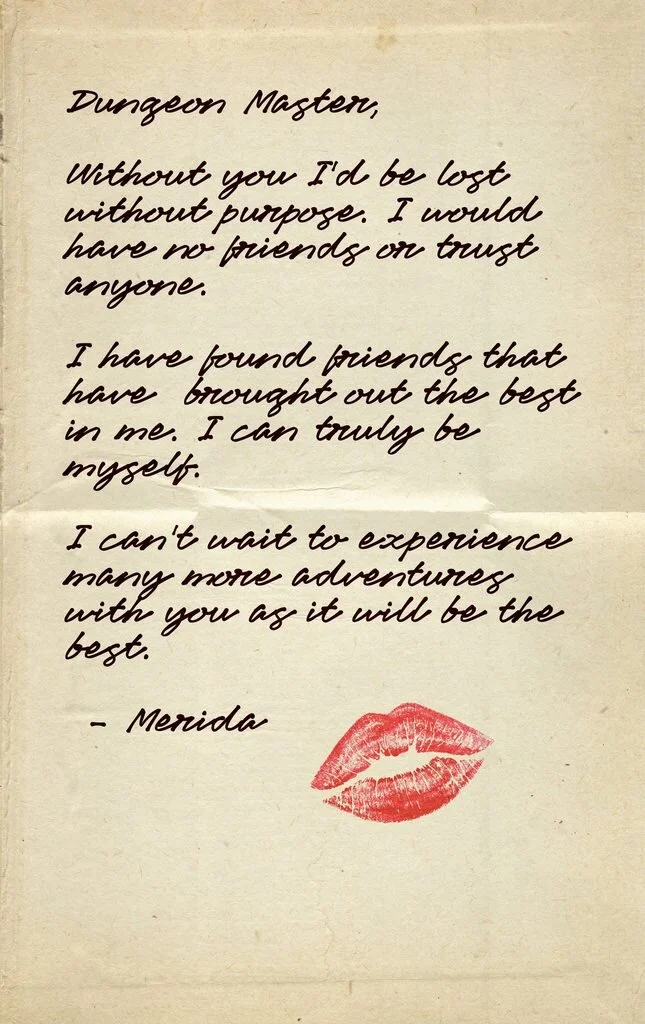 Dungeon Master,
Without you I'd be lost
without purpose. I would
have no friends or trust
anyone.
I have found friends that
have brought out the best
in me. I can truly be
myself.
I can't wait to experience
many more adventures
with you as it will be the
best.
- Merida